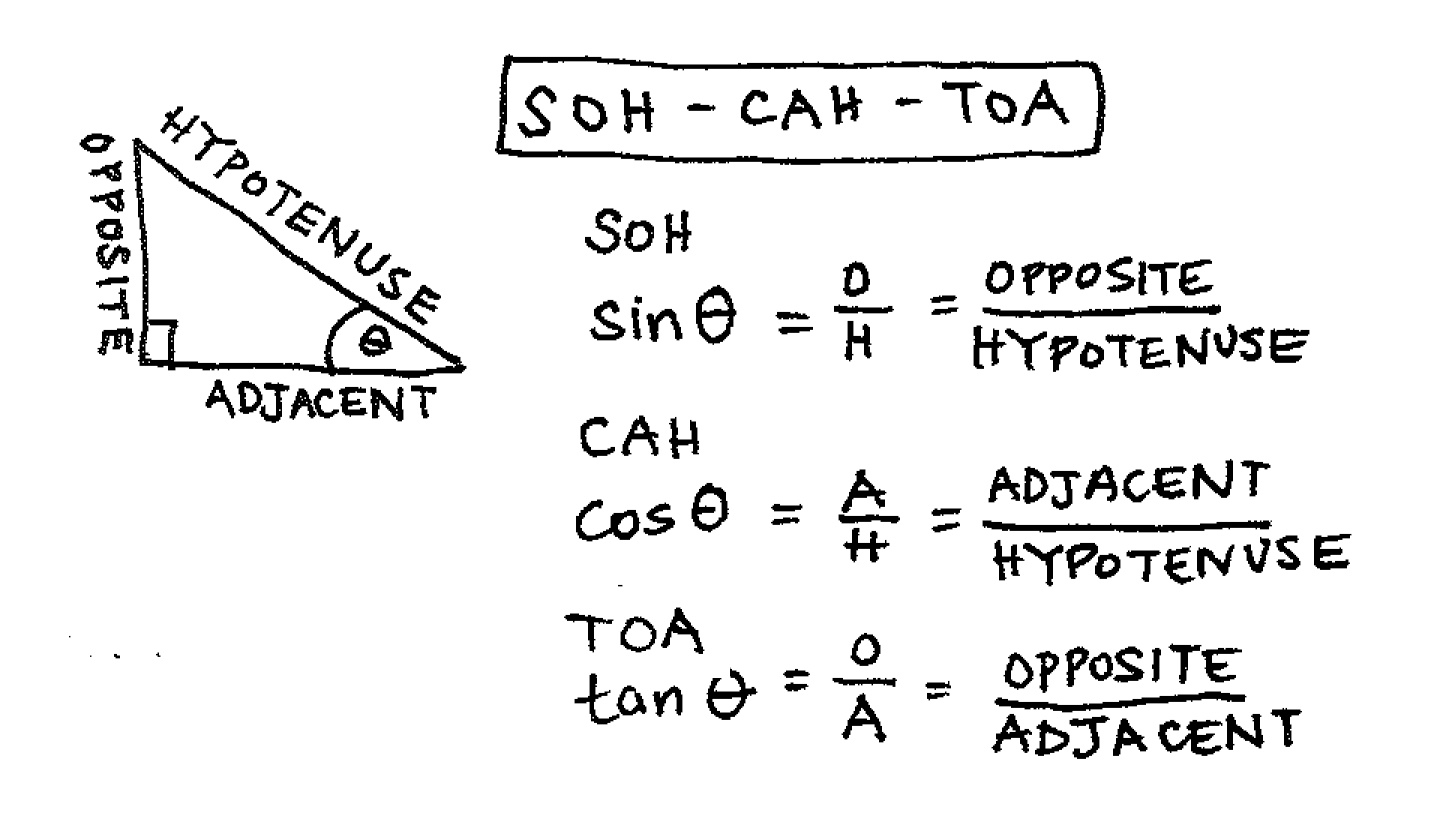 SOH - CAH - TOA
HYPOTENUSE
OPPOSITE
θ
ADJACENT
SOH
sin θ = O/H = OPPOSITE/HYPOTENUSE
CAH
cos θ = A/H = ADJACENT/HYPOTENUSE
TOA
tan θ = O/A = OPPOSITE/ADJACENT